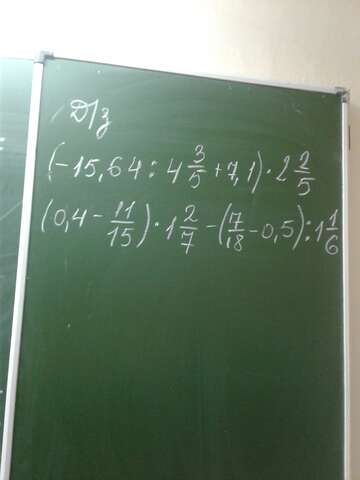 Д/з
(-15,64 : 4 3/5 + 7,1) · 2 2/5
(0,4 - 11/15) · 1 2/7 - (7/18 - 0,5) : 1 1/6